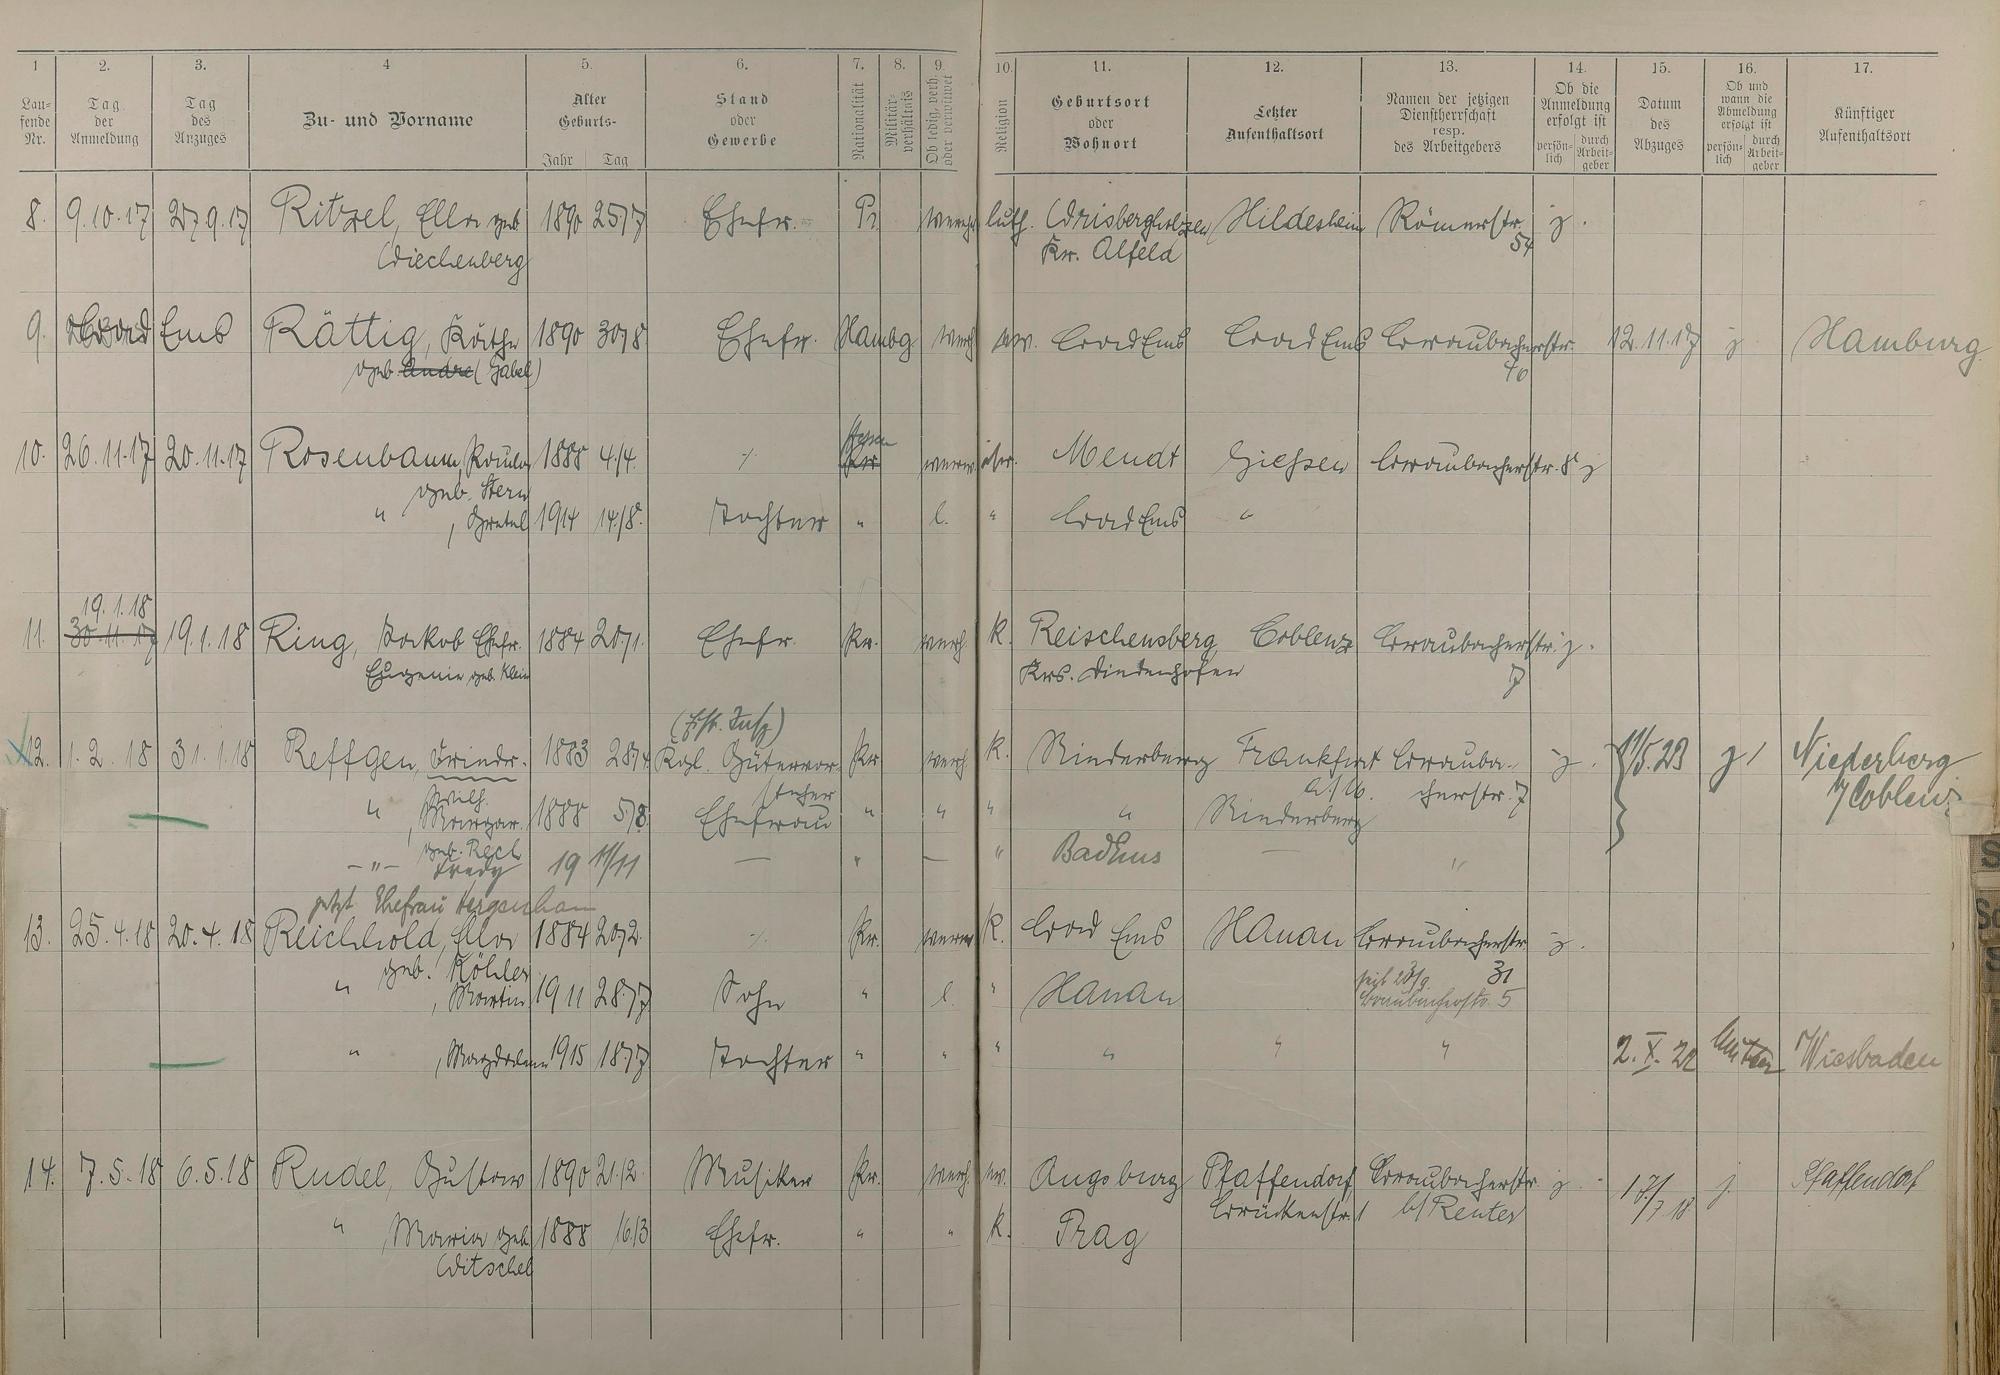 1 2. 3. 4 5. 6. 7. 8. 9. 10. 11. 12. 13. 14. 15. 16. 17.
Laufende Nr. Tag der Anmeldung Tag des Anzuges Zu- und Vorname Alter Geburts- Jahr Tag Stand oder Gewerbe Nationalität Militärverhältnis Ob ledig, verh. oder verwitwet Religion Geburtsort oder Wohnort Letzter Aufenthaltsort Namen der jetzigen Dienstherrschaft resp. des Arbeitgebers Ob die Anmeldung erfolgt ist persönlich durch Arbeitgeber Datum des Abzuges Ob und wann die Abmeldung erfolgt ist persönlich durch Arbeitgeber Künftiger Aufenthaltsort
8. 9.10.17 27.9.17 Ritzel, Ella geb. 1890 25/7 Ehefr. Pr. verh. luth. Hildesheim Römerstr. j.
54
Kr. Alfeld
9. Bad Ems Rättig, Käthe 1890 30/8 Ehefr. Hambg verh. ev. Bad Ems Bad Ems Braubacherstr. 12.11.17 j Hamburg
geb. Andre (Zabel) 40
10. 26.11.17 20.11.17 Rosenbaum, Paula 1888 4/4. Hessen Pr. verw. isr. Mendt Giessen Braubacherstr. 8 j
geb. Stern
" , Gretel 1914 14/8. Tochter " l. " Bad Ems "
19.1.18
11. 30.11.17 19.1.18 Ring, Jakob Ehefr. 1884 20/1. Ehefr. Pr. verh. k. Reischensberg, Coblenz Braubacherstr. j.
Eugenie geb. Klein Krs. Diedenhofen 7
12. 1.2.18 31.1.18 Reffgen, Friedr. 1883 28/4 Kgl. Gütervor- Pr. verh. k. Niederberg Frankfurt Brauba- j. 11/5.23 j Niederberg
Wilh. steher a/M. cherstr. 7 / Coblenz
" , Margar. 1888 5/8. Ehefrau " " " " Niederberg
geb. Rech
-"- Fredy 19 11/11 — " — " Bad Ems — "
jetzt Ehefrau Hergenhan
13. 25.4.18 20.4.18 Reichhold, Ella 1884 20/2. Pr. verw. k. Bad Ems Hanau Braubacherstr. j.
geb. Köhler 31
" , Martin 1911 28/7 Sohn " l. " Hanau
Braubacherstr. 5
" , Magdalena 1915 18/7 Tochter " " " " " " 2.X.22 Mutter Wiesbaden
14. 7.5.18 6.5.18 Rudel, Gustav 1890 21/2. Musiker Pr. verh. ev. Augsburg Pfaffendorf, Braubacherstr. j. 17/7 18 j. Pfaffendorf
Brückenstr. 1 b/ Reuter
" , Maria geb. 1888 16/3 Ehefr. " " k. Prag
Witschel